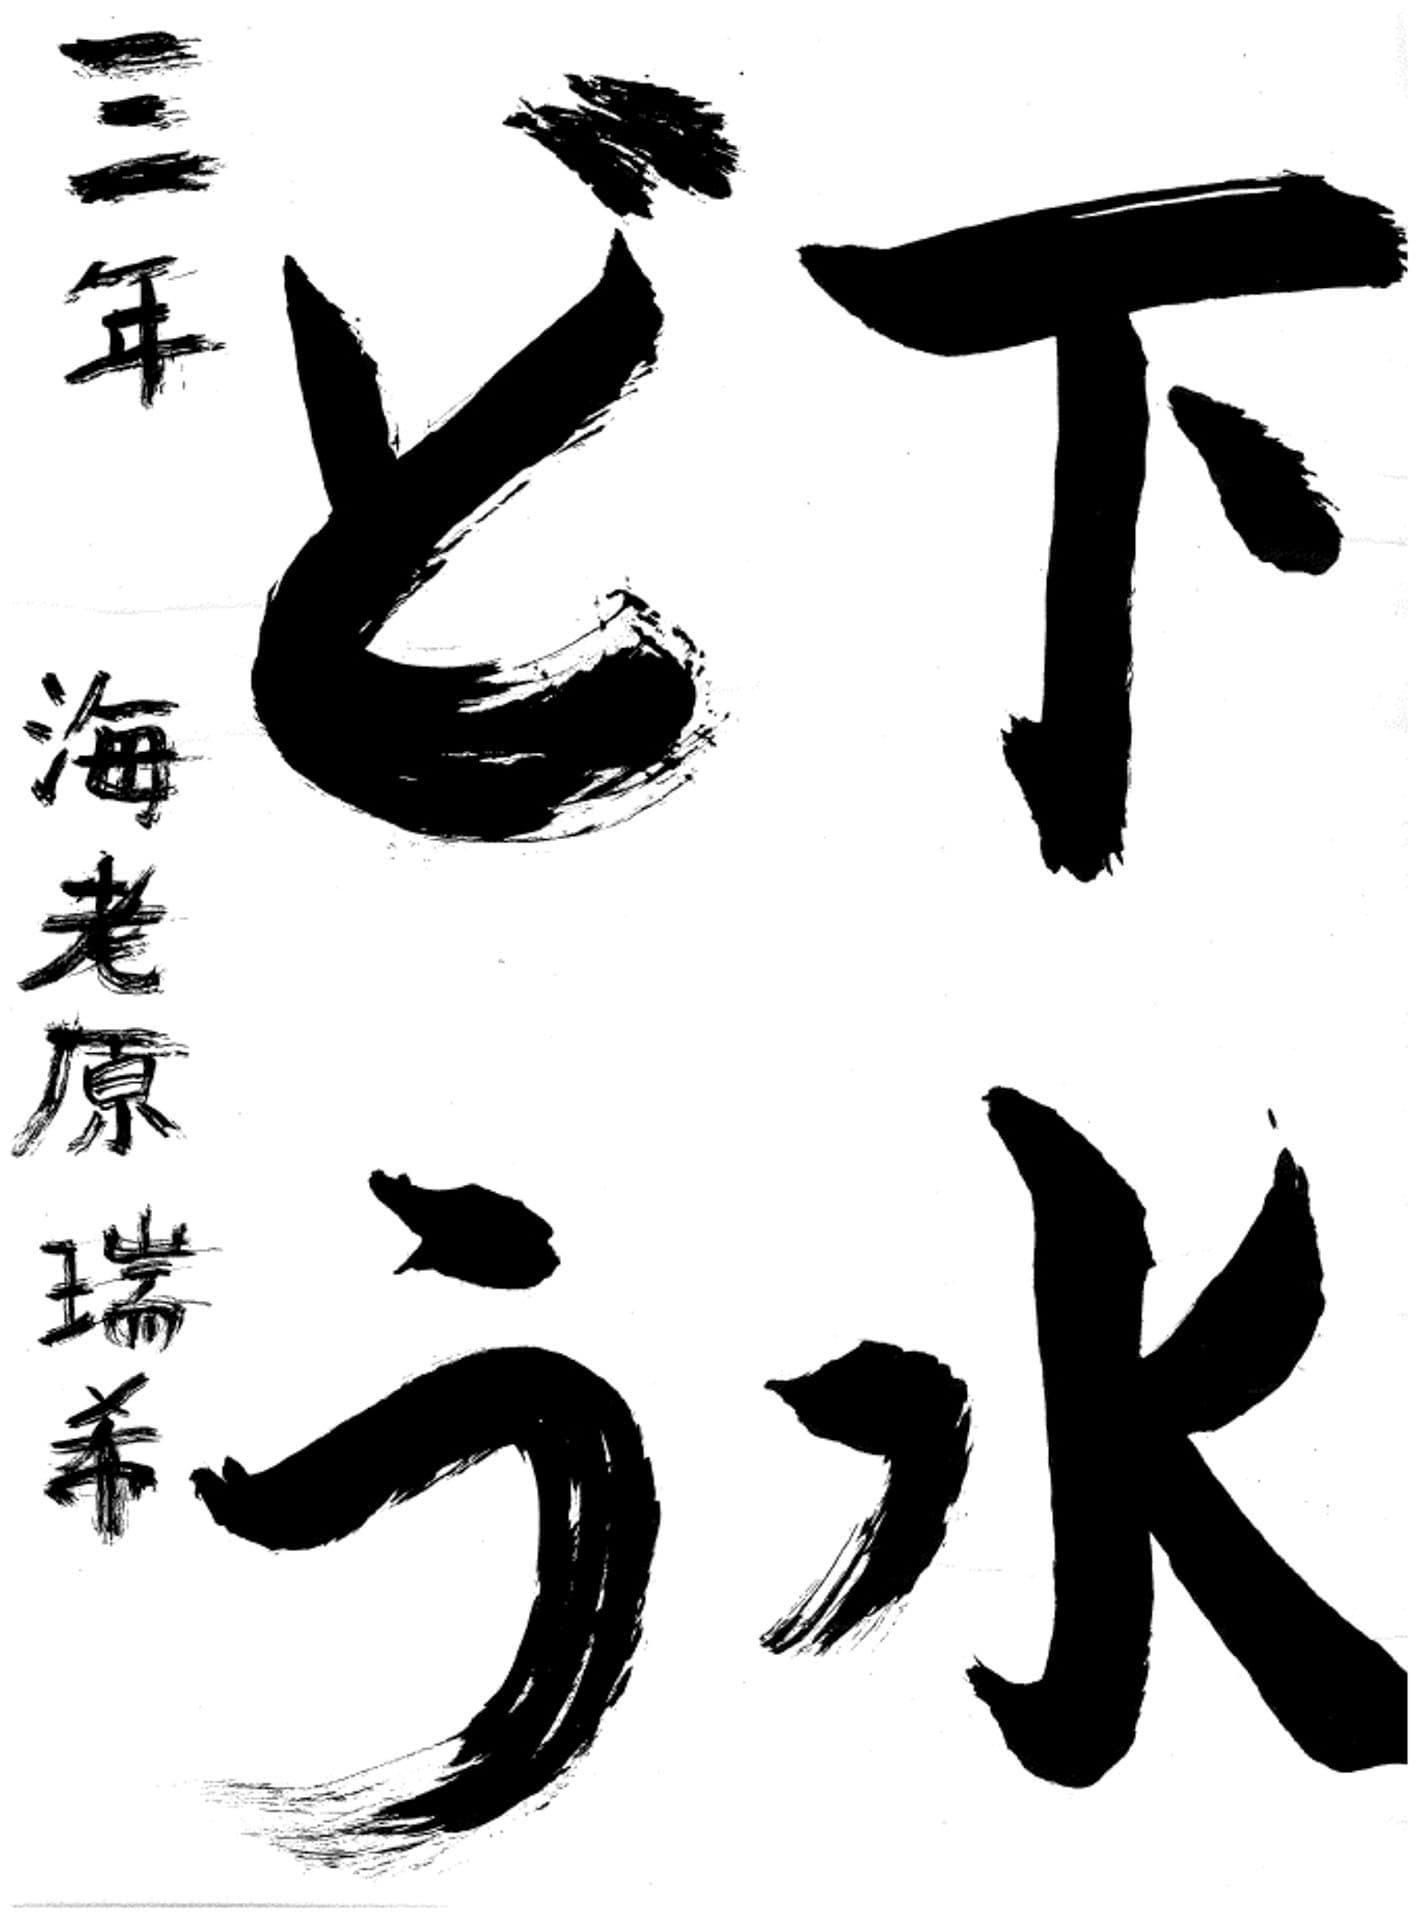 下水
どう
三年 海老原 瑞希